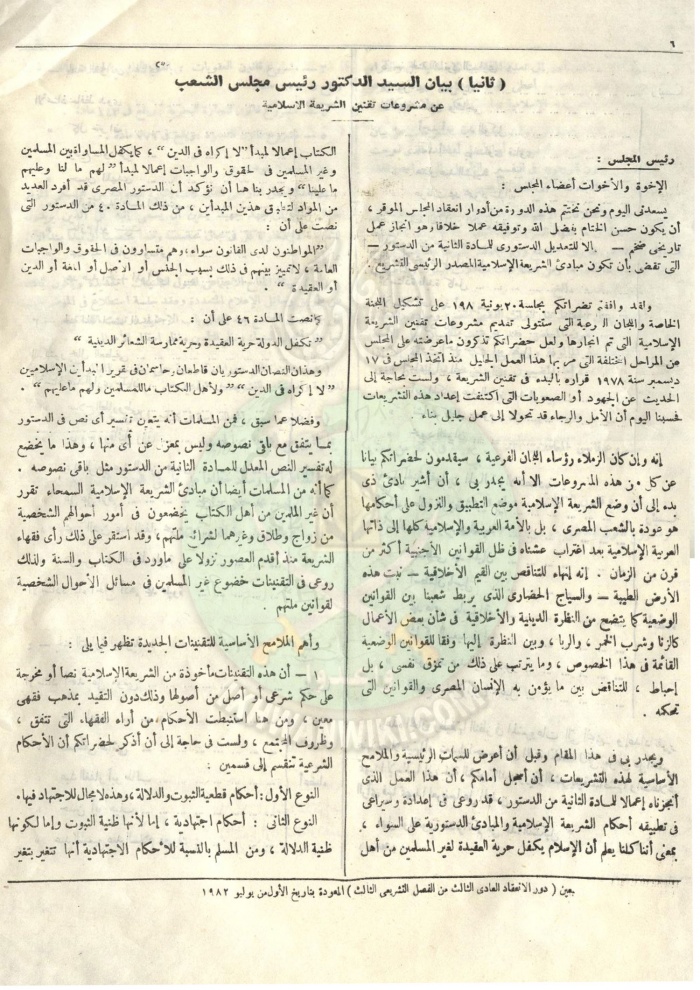 ٦
( ثانيا ) بيان السيد الدكتور رئيس مجلس الشعب
عن مشروعات تقنين الشريعة الاسلامية
رئيس المجلس :
الإخوة والأخوات أعضاء المجلس :
يسعدنى اليوم ونحن نختتم هذه الدورة من أدوار انعقاد المجلس الموقر ،
أن يكون حسن الختام بفضل الله وتوفيقه عملا خلاقا هو انجاز عمل
تاريخى ضخم — للتعديل الدستورى للمادة الثانية من الدستور —
التى تقضى بأن تكون مبادئ الشريعة الإسلامية المصدر الرئيسى للتشريع .
ولقد وافقتم حضراتكم بجلسة ٢٠ يونية على تشكيل اللجنة
الخاصة واللجان الفرعية التى ستتولى تقديم مشروعات تقنين الشريعة
الإسلامية التى تم انجازها ولعل حضراتكم تذكرون ما عرضته على المجلس
عن المراحل المختلفة التى مر بها هذا العمل الجليل منذ اتخذ المجلس فى ١٧
ديسمبر سنة ١٩٧٨ قراره بالبدء فى تقنين الشريعة ، ولست بحاجة إلى
الحديث عن الجهود أو الصعوبات التى اكتنفت إعداد هذه التشريعات
فحسبنا اليوم أن الأمل والرجاء قد تحولا إلى عمل جليل بناء .
إنه وإن كان الزملاء رؤساء اللجان الفرعية ، سيقدمون لحضراتكم بيانا
عن كل من هذه المشروعات الا أنه يجدر بى ، أن أشير بادئ ذى
بدء إلى أن وضع الشريعة الإسلامية موضع التطبيق والنزول على أحكامها
هو عودة بالشعب المصرى ، بل بالأمة العربية والإسلامية كلها إلى ذاتها
العربية الإسلامية بعد اغتراب عشناه فى ظل القوانين الأجنبية أكثر من
قرن من الزمان . إنه إنهاء للتناقص بين القيم الأخلاقية — نبت هذه
الأرض الطيبة — والسياج الحضارى الذى يربط شعبنا بين القوانين
الوضعية كما يتضح من النظرة الدينية والأخلاقية فى شأن بعض الأعمال
كالزنا وشرب الخمر ، والربا ، وبين النظرة إليها وفقا للقوانين الوضعية
القائمة فى هذا الخصوص ، وما يترتب على ذلك من تمزق نفسى ، بل
إحباط ، للتناقض بين ما يؤمن به الإنسان المصرى والقوانين التى
تحكمه .
ويجدر بى فى هذا المقام وقبل أن أعرض للسمات الرئيسية والملامح
الأساسية لهذه التشريعات ، أن أسجل أمامكم ، أن هذا العمل الذى
أنجزناه إعمالا للمادة الثانية من الدستور ، قد روعى فى إعداده وسيراعى
فى تطبيقه أحكام الشريعة الإسلامية والمبادئ الدستورية على السواء ،
بمعنى أننا كلنا يعلم أن الإسلام يكفل حرية العقيدة لغير المسلمين من أهل
الكتاب إعمالا لمبدأ "لا إكراه فى الدين" ، كما يكفل المساواة بين المسلمين
وغير المسلمين فى الحقوق والواجبات إعمالا لمبدأ "لهم ما لنا وعليهم
ما علينا" ويجدر بنا هنا أن نؤكد أن الدستور المصرى قد أفرد العديد
من المواد لتطبيق هذين المبدأين ، من ذلك المادة ٤٠ من الدستور التى
نصت على أن :
"المواطنون لدى القانون سواء ، وهم متساوون فى الحقوق والواجبات
العامة ، لا تمييز بينهم فى ذلك بسبب الجنس أو الأصل أو اللغة أو الدين
أو العقيدة " .
كما نصت المادة ٤٦ على أن :
" تكفل الدولة حرية العقيدة وحرية ممارسة الشعائر الدينية "
وهذان النصان الدستوريان قاطعان وحاسمان فى تقرير المبدأين الإسلاميين
" لا إكراه فى الدين " " ولأهل الكتاب ما للمسلمين ولهم ما عليهم " .
وفضلا عما سبق ، فمن المسلمات أنه يتعين تفسير أى نص فى الدستور
بما يتفق مع باقى نصوصه وليس بمعزل عن أى منها ، وهذا ما يخضع
له تفسير النص المعدل للمادة الثانية من الدستور مثل باقى نصوصه .
كما أنه من المسلمات أيضا أن مبادئ الشريعة الإسلامية السمحاء تقرر
أن غير المسلمين من أهل الكتاب يخضعون فى أمور أحوالهم الشخصية
من زواج وطلاق وغيرهما لشرائع ملتهم ، وقد استقر على ذلك رأى فقهاء
الشريعة منذ أقدم العصور نزولا على ما ورد فى الكتاب والسنة ولذلك
روعى فى التقنينات خضوع غير المسلمين فى مسائل الأحوال الشخصية
لقوانين ملتهم .
وأهم الملامح الأساسية للتقنينات الجديدة تظهر فيما يلى :
١ — أن هذه التقنينات مأخوذة من الشريعة الإسلامية نصا أو مخرجة
على حكم شرعى أو أصل من أصولها وذلك دون التقيد بمذهب فقهى
معين ، ومن هنا استنبطت الأحكام من أراء الفقهاء التى تتفق ،
وظروف المجتمع ، ولست فى حاجة إلى أن أذكر لحضراتكم أن الأحكام
الشرعية تنقسم إلى قسمين :
النوع الأول : أحكام قطعية الثبوت والدلالة ، وهذه لا مجال للاجتهاد فيها .
النوع الثانى : أحكام اجتهادية ، إما لأنها ظنية الثبوت وإما لكونها
ظنية الدلالة ، ومن المسلم بالنسبة للأحكام الاجتهادية أنها تتغير بتغير
( دور الانعقاد العادى الثالث من الفصل التشريعى الثالث ) المعودة بتاريخ الأول من يوليو ١٩٨٢